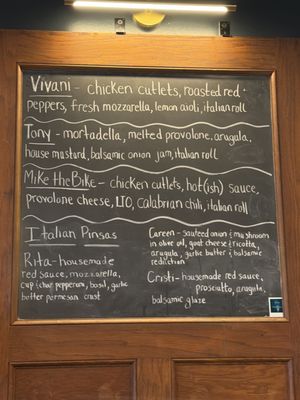 Vivani - chicken cutlets, roasted red
peppers, fresh mozzarella, lemon aioli, italian roll
Tony - mortadella, melted provolone, arugula,
house mustard, balsamic onion jam, italian roll
Mike the Bike - chicken cutlets, hot(ish) sauce,
provolone cheese, LTO, calabrian chili, italian roll
Italian Pinsas
Rita - housemade
red sauce, mozzarella,
cup & char pepperoni, basil, garlic
butter parmesan crust
Careen - sauteed onion & mushroom
in olive oil, goat cheese & ricotta,
arugula, garlic butter & balsamic
reduction
Cristi - housemade red sauce,
prosciutto, arugula,
balsamic glaze